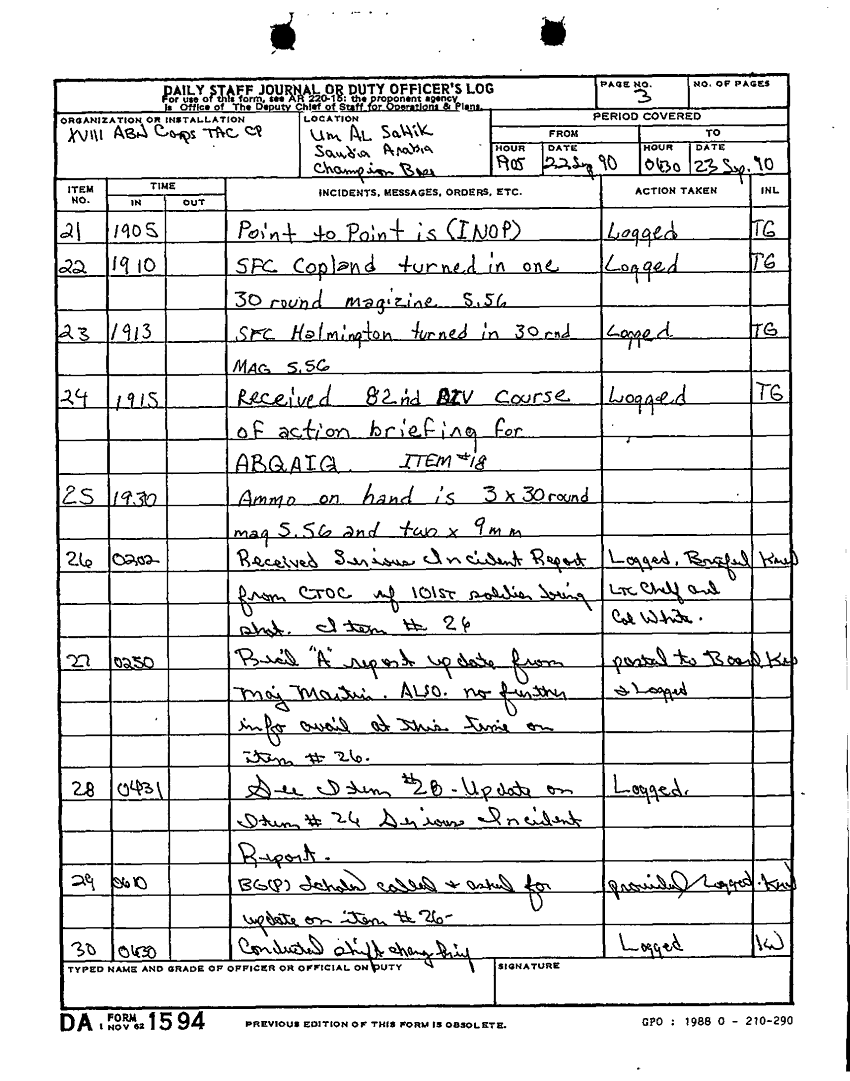 DAILY STAFF JOURNAL OR DUTY OFFICER'S LOG
For use of this form, see AR 220-15; the proponent agency
is Office of The Deputy Chief of Staff for Operations & Plans.
PAGE NO.
3
NO. OF PAGES
ORGANIZATION OR INSTALLATION
XVIII ABN Corps TAC CP
LOCATION
Um AL Sahik
Saudia Arabia
Champion Base
PERIOD COVERED
FROM
TO
HOUR
1905
DATE
22 Sep 90
HOUR
0630
DATE
23 Sep. 90
ITEM NO.
TIME
IN
OUT
INCIDENTS, MESSAGES, ORDERS, ETC.
ACTION TAKEN
INL
21 1905 Point to Point is (INOP) Logged TG
22 1910 SFC Copland turned in one Logged TG
30 round magizine 5.56
23 1913 SFC Halmington turned in 30 rnd Logged TG
MAG 5.56
24 1915 Received 82nd DIV Course Logged TG
of action briefing for
ABQAIQ ITEM #18
25 1930 Ammo on hand is 3 x 30 round
mag 5.56 and two x 9mm
26 0202 Received Serious Incident Report Logged, Briefed
from CTOC of 101ST soldier being LTC Chelf and
shot. Item # 26 Col White.
27 0250 "A" report update from posted to Board
Maj Martin. ALSO. no further & Logged
info avail at this time on
item # 26.
28 0431 See Item #28 - Update on Logged.
Item # 26 Serious Incident
Report.
29 0610 BG(P) called & asked for provided/Logged.
update on item # 26-
30 0630 Conducted shift change brief Logged KW
TYPED NAME AND GRADE OF OFFICER OR OFFICIAL ON DUTY
SIGNATURE
DA FORM 1 NOV 62 1594
PREVIOUS EDITION OF THIS FORM IS OBSOLETE.
GPO : 1988 O - 210-290